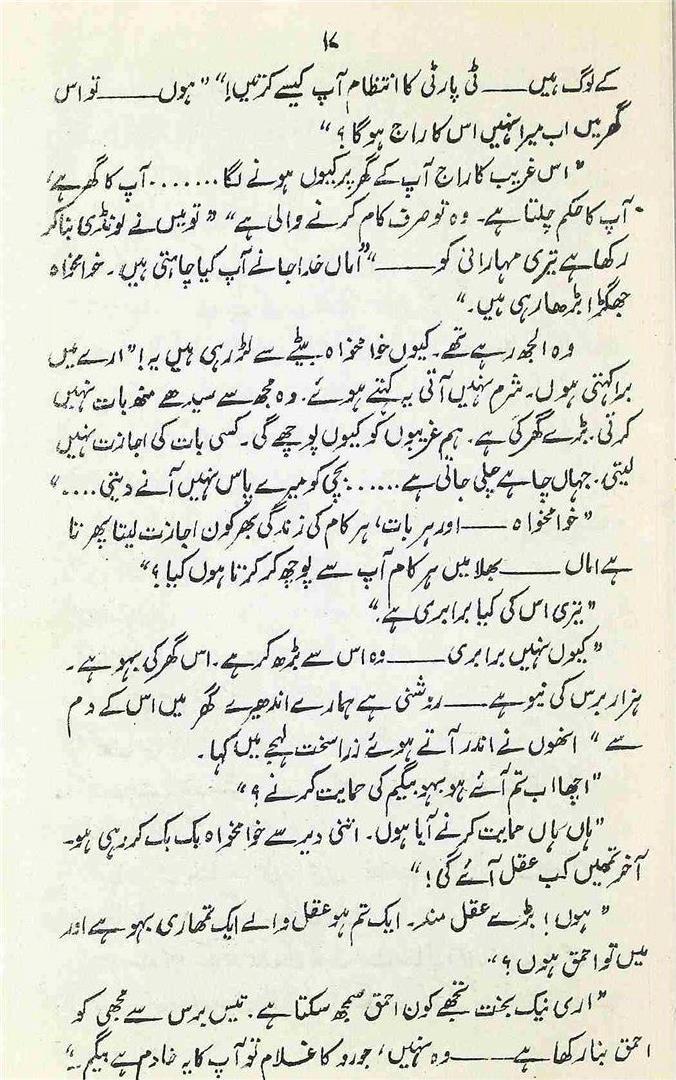 ۱۷
کے لوگ ہیں ـــــ ٹی پارٹی کا انتظام آپ کیسے کرتیں!“ ”ہوں ـــــ تو اس
گھر میں اب میرا نہیں اس کا راج ہوگا؟“
”اس غریب کا راج آپ کے گھر پر کیوں ہونے لگا....... آپ کا گھر ہے،
آپ کا حکم چلتا ہے۔ وہ تو صرف کام کرنے والی ہے“ ”تو میں نے لونڈی بنا کر
رکھا ہے تیری مہارانی کو ـــــ“ ”اماں خدا جانے آپ کیا چاہتی ہیں۔ خوامخواہ
جھگڑا بڑھا رہی ہیں۔“
وہ الجھ رہے تھے۔ کیوں خوامخواہ بیٹے سے لڑ رہی ہیں یہ! ”ارے میں
برا کہتی ہوں۔ شرم نہیں آتی یہ کہتے ہوئے۔ وہ مجھ سے سیدھے منھ بات نہیں
کرتی۔ بڑے گھر کی ہے۔ ہم غریبوں کو کیوں پوچھے گی۔ کسی بات کی اجازت نہیں
لیتی۔ جہاں چاہے چلی جاتی ہے...... بچی کو میرے پاس نہیں آنے دیتی....“
”خوامخواہ ـــــ اور ہر بات، ہر کام کی زندگی بھر کون اجازت لیتا پھرتا
ہے اماں ـــــ بھلا میں ہر کام آپ سے پوچھ کر کرتا ہوں کیا؟“
”تیری اس کی کیا برابری ہے۔“
”کیوں نہیں برابری ـــــ وہ اس سے بڑھ کر ہے۔ اس گھر کی بہو ہے۔
ہزار برس کی نیو ہے ـــــ روشنی ہے ہمارے اندھیرے گھر میں اس کے دم
سے“ انھوں نے اندر آتے ہوئے ذرا سخت لہجے میں کہا۔
”اچھا اب تم آئے ہو بہو بیگم کی حمایت کرنے؟“
”ہاں ہاں حمایت کرنے آیا ہوں۔ اتنی دیر سے خوامخواہ بک بک کر رہی ہو۔
آخر تمھیں کب عقل آئے گی!“
”ہوں! بڑے عقل مند۔ ایک تم ہو عقل والے ایک تمھاری بہو ہے اور
میں تو احمق ہوں؟“
”اری نیک بخت تجھے کون احمق سمجھ سکتا ہے۔ تیس برس سے مجھی کو
احمق بنا رکھا ہے ـــــ وہ نہیں، جورو کا غلام تو آپ کا یہ خادم ہے بیگم۔“